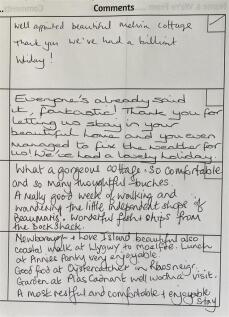 Comments
Well appointed beautiful melvin cottage
Thank you we've had a brilliant
holiday!
Everyone's already said
it, fantastic! Thank you for
letting us stay in your
beautiful home and you even
managed to fix the weather for
us! We've had a lovely holiday.
What a gorgeous cottage. So comfortable
and so many thoughtful touches.
A really good week of walking and
wandering the little independent shops of
Beaumaris. Wonderful fish + chips from
the Dock Shack.
Newborough + Love Island beautiful also
coastal walk at Llygwy to moelfre. Lunch
at Annies Pantry very enjoyable.
Good food at Oystercatcher in Rhosneigr.
Garden at Plas Cadnant well worth a visit.
A most restful and comfortable + enjoyable
stay